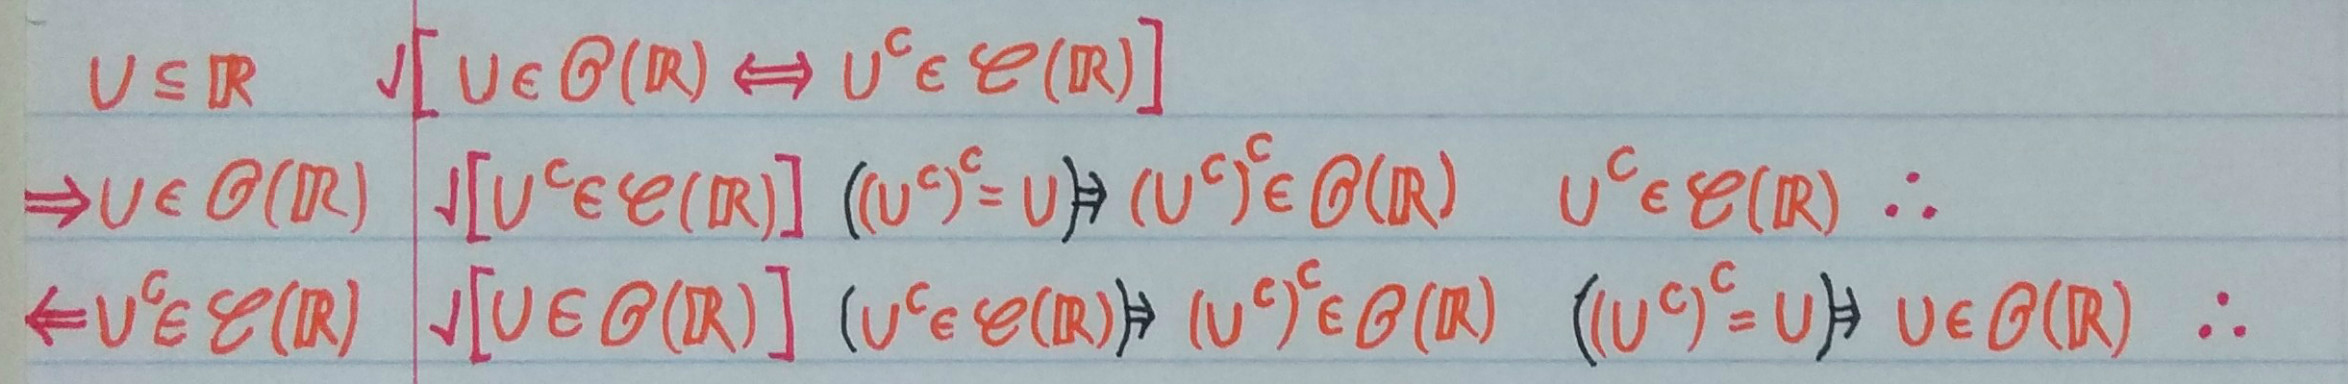 U ⊆ ℝ √[U ∈ 𝒪(ℝ) ⟺ Uᶜ ∈ 𝒞(ℝ)]
⇒ U ∈ 𝒪(ℝ) √[Uᶜ ∈ 𝒞(ℝ)] ((Uᶜ)ᶜ = U)⤇ (Uᶜ)ᶜ ∈ 𝒪(ℝ) Uᶜ ∈ 𝒞(ℝ) ∴
⇐ Uᶜ ∈ 𝒞(ℝ) √[U ∈ 𝒪(ℝ)] (Uᶜ ∈ 𝒞(ℝ))⤇ (Uᶜ)ᶜ ∈ 𝒪(ℝ) ((Uᶜ)ᶜ = U)⤇ U ∈ 𝒪(ℝ) ∴